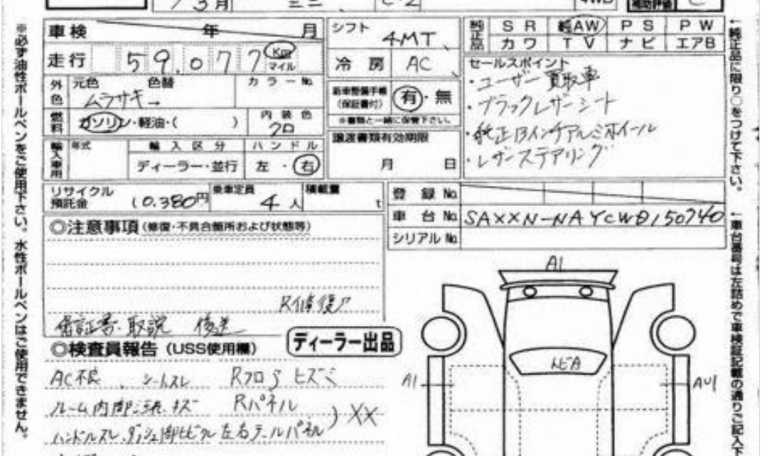 3月 ミニ C-2 4WD 補助評価 C
車検 年 月 シフト 4MT 純正品 SR AW PS PW
カワ TV ナビ エアB
走行 59,077 Km マイル 冷房 AC
セールスポイント
・ユーザー買取車
・ブラックレザーシート
・純正13インチアルミホイール
・レザーステアリング
外色 元色 色替 カラーNo.
ムラサキ→
新車整備手帳(保証書付) 有・無
※書類と一緒に保管下さい。
燃料 ガソリン・軽油・( ) 内装色 クロ
譲渡書類有効期限
月 日
輸入車用 年式 輸入区分 ハンドル
ディーラー・並行 左・右
リサイクル預託金 10,380円 乗車定員 4人 積載量 t
登録No.
車台No. SAXXN-NAYCWD150740
シリアルNo.
◎注意事項(修復・不具合箇所および状態等)
R修復
保証書・取説 後送
ディーラー出品
◎検査員報告(USS使用欄)
AC不良 、シートスレ Rフロア ヒズミ
ルーム内部 キズ Rパネル
ハンドルスレ ダッシュ 左右テールパネル
XX
A1
トビA
A1
AU1
※必ず油性ボールペンをご使用下さい。水性ボールペンはご使用できません。
←純正品に限り○をつけて下さい。
←車台番号は左詰めで車検証記載の通りご記入下